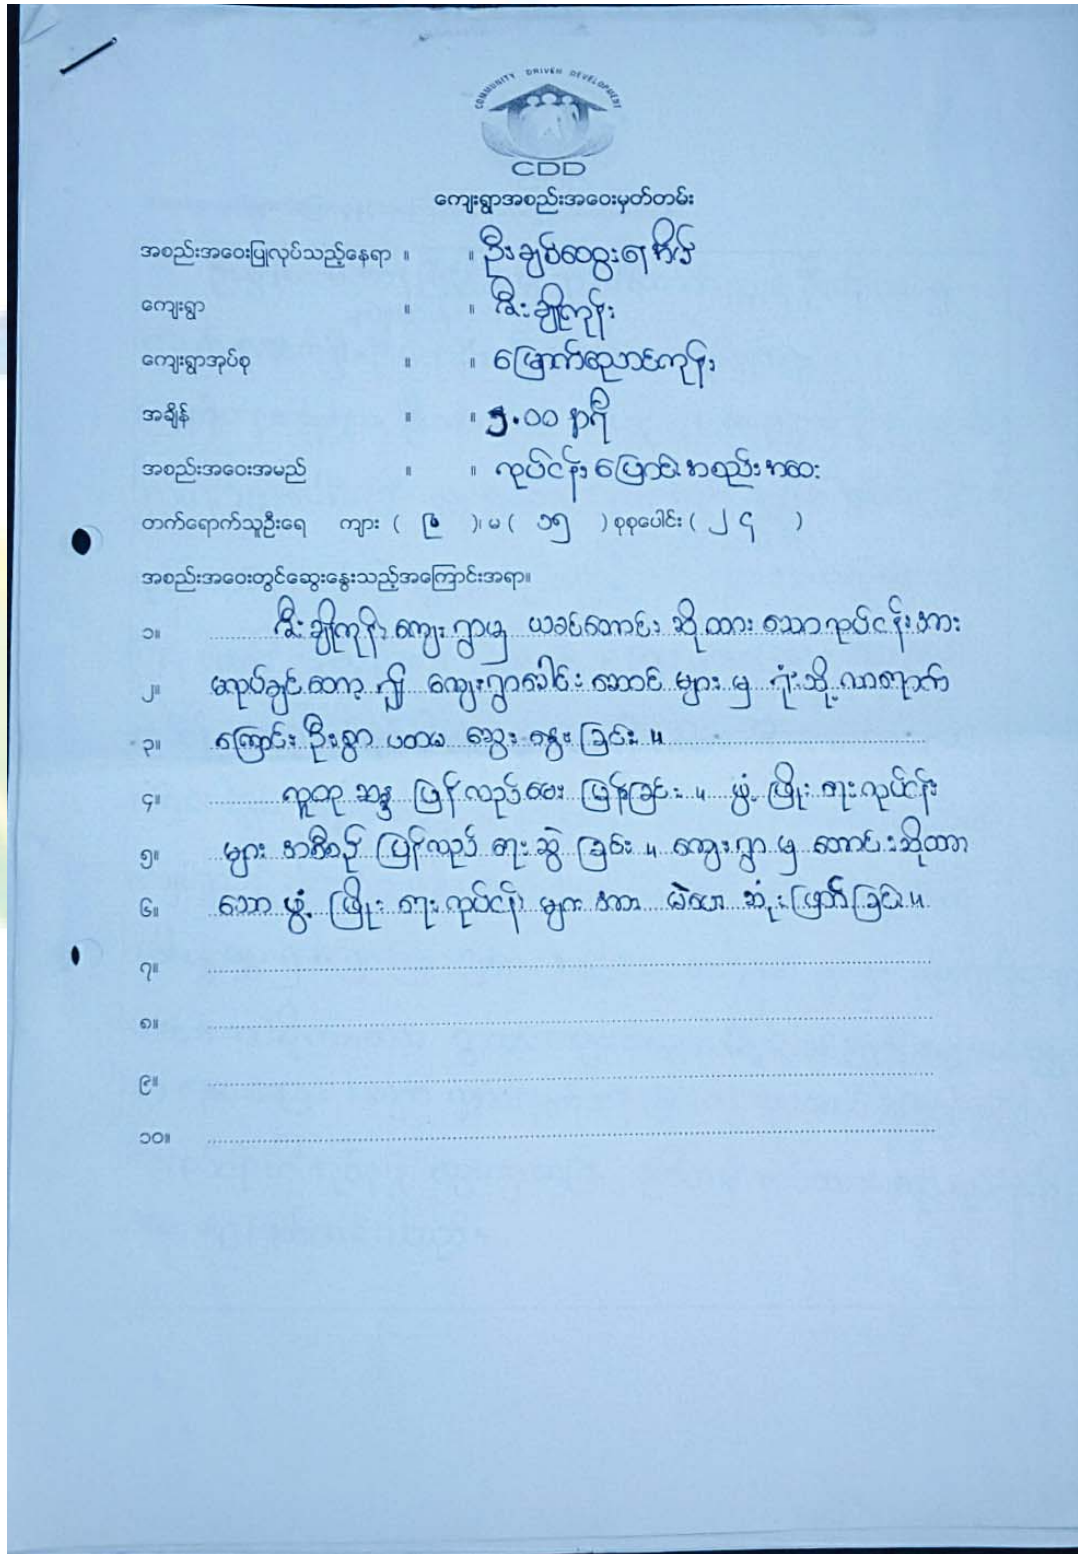 COMMUNITY DRIVEN DEVELOPMENT
CDD
ကျေးရွာအစည်းအဝေးမှတ်တမ်း
အစည်းအဝေးပြုလုပ်သည့်နေရာ ။ ။ ဦးချစ်ဆွေ အိမ်
ကျေးရွာ ။ ။ ဇီးချိုကုန်း
ကျေးရွာအုပ်စု ။ ။ မြောက်ညောင်ကုန်း
အချိန် ။ ။ ၅.၀၀ နာရီ
အစည်းအဝေးအမည် ။ ။ လုပ်ငန်းပြောင်းအစည်းအဝေး
တက်ရောက်သူဦးရေ ကျား ( ၉ )၊ မ ( ၁၅ ) စုစုပေါင်း ( ၂၄ )
အစည်းအဝေးတွင်ဆွေးနွေးသည့်အကြောင်းအရာ။
၁။ ဇီးချိုကုန်းကျေးရွာမှ ယခင်တောင်းဆိုထားသောလုပ်ငန်းအား
၂။ မလုပ်ချင်တော့၍ ကျေးရွာခေါင်းဆောင်များမှ ရုံးသို့လာရောက်
၃။ ကြောင်း ဦးစွာ ပထမ ဆွေးနွေးခြင်း။
၄။ လူထုဆန္ဒ ပြန်လည်မေးမြန်းခြင်း။ ဖွံ့ဖြိုးရေးလုပ်ငန်း
၅။ များ အစီစဉ် ပြန်လည် ရေးဆွဲခြင်း။ ကျေးရွာမှ တောင်းဆိုထား
၆။ သော ဖွံ့ဖြိုးရေးလုပ်ငန်း များအား မဲပေးဆုံးဖြတ်ခြင်း။
၇။
၈။
၉။
၁၀။